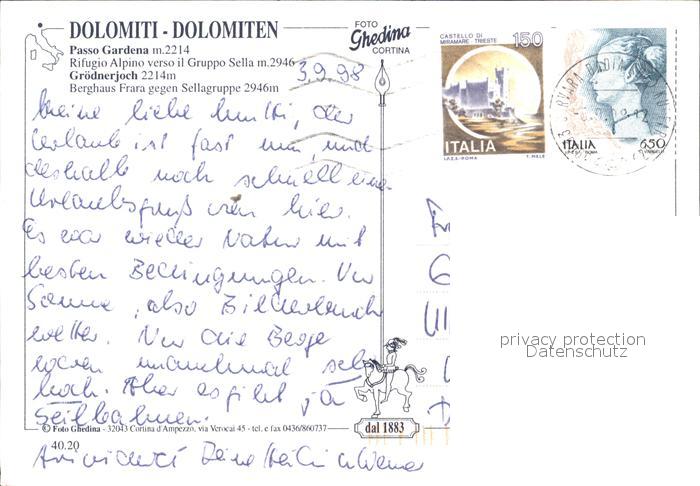 DOLOMITI - DOLOMITEN
Passo Gardena m.2214
Rifugio Alpino verso il Gruppo Sella m.2946
Grödnerjoch 2214m
Berghaus Frara gegen Sellagruppe 2946m
FOTO
Ghedina
CORTINA
CASTELLO DI
MIRAMARE - TRIESTE
150
ITALIA
I.P.Z.S. - ROMA
ITALIA
650
3.9.98
Meine liebe Mutti, der
Urlaub ist fast um, und
deshalb noch schnell eine
Urlaubsgruß von hier.
Es war wieder Natur mit
besten Bedingungen. Nur
Sonne, also Bilderbuch
wetter. Nur die Berge
waren manchmal sehr
hoch. Aber es gibt ja
Seilbahnen.
privacy protection
Datenschutz
dal 1883
© Foto Ghedina - 32043 Cortina d'Ampezzo, via Verocai 45 - tel. e fax 0436/860737
40.20
Deine